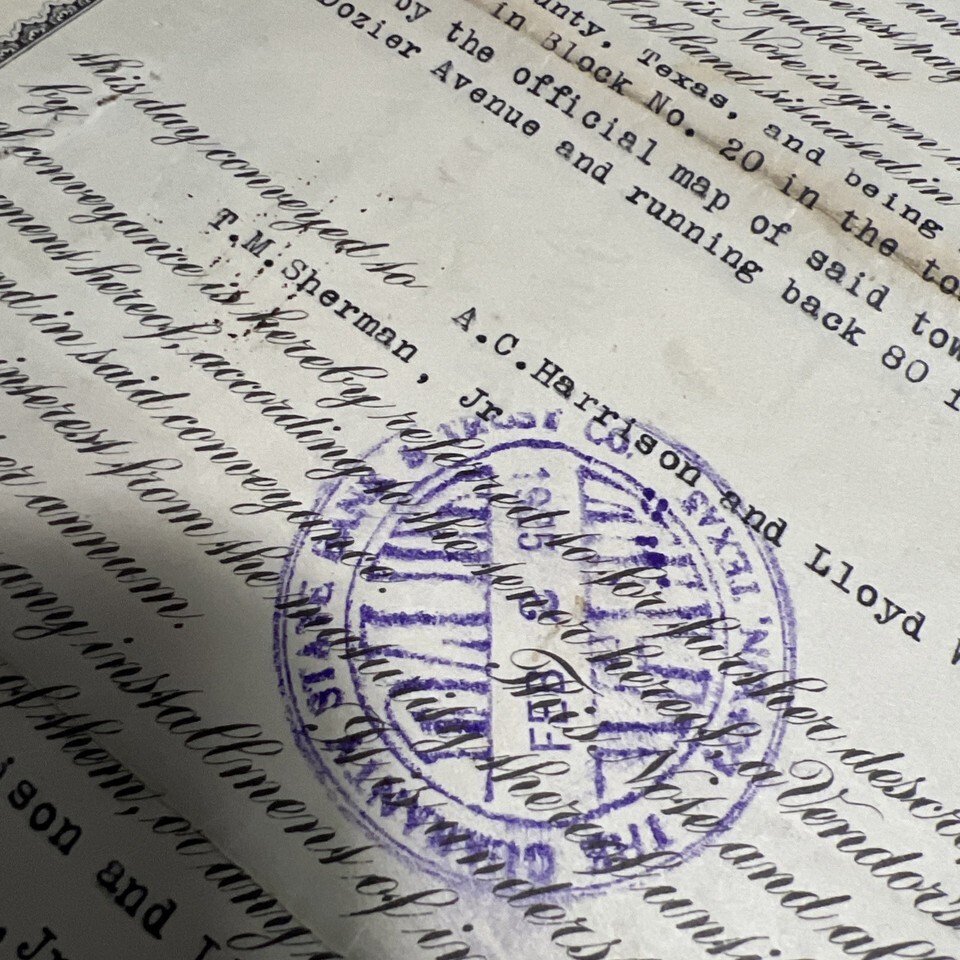 this Note is given in
of land situated in
unty, Texas, and being
in Block No. 20 in the to
by the official map of said tow
Dozier Avenue and running back 80
this day conveyed to A.C.Harrison and Lloyd
by T.M.Sherman, Jr.
of conveyance is hereby referred to for further descr
hereof, according to the tenor hereof, a Vendors
in said conveyance. This Note and all
interest from the maturity thereof unti
er annum. It is unders
any installment of in
of them, or any
ison and
Jr
THE GUARANTY STATE BANK & TRUST CO. TEXAS
FEB 2 1925